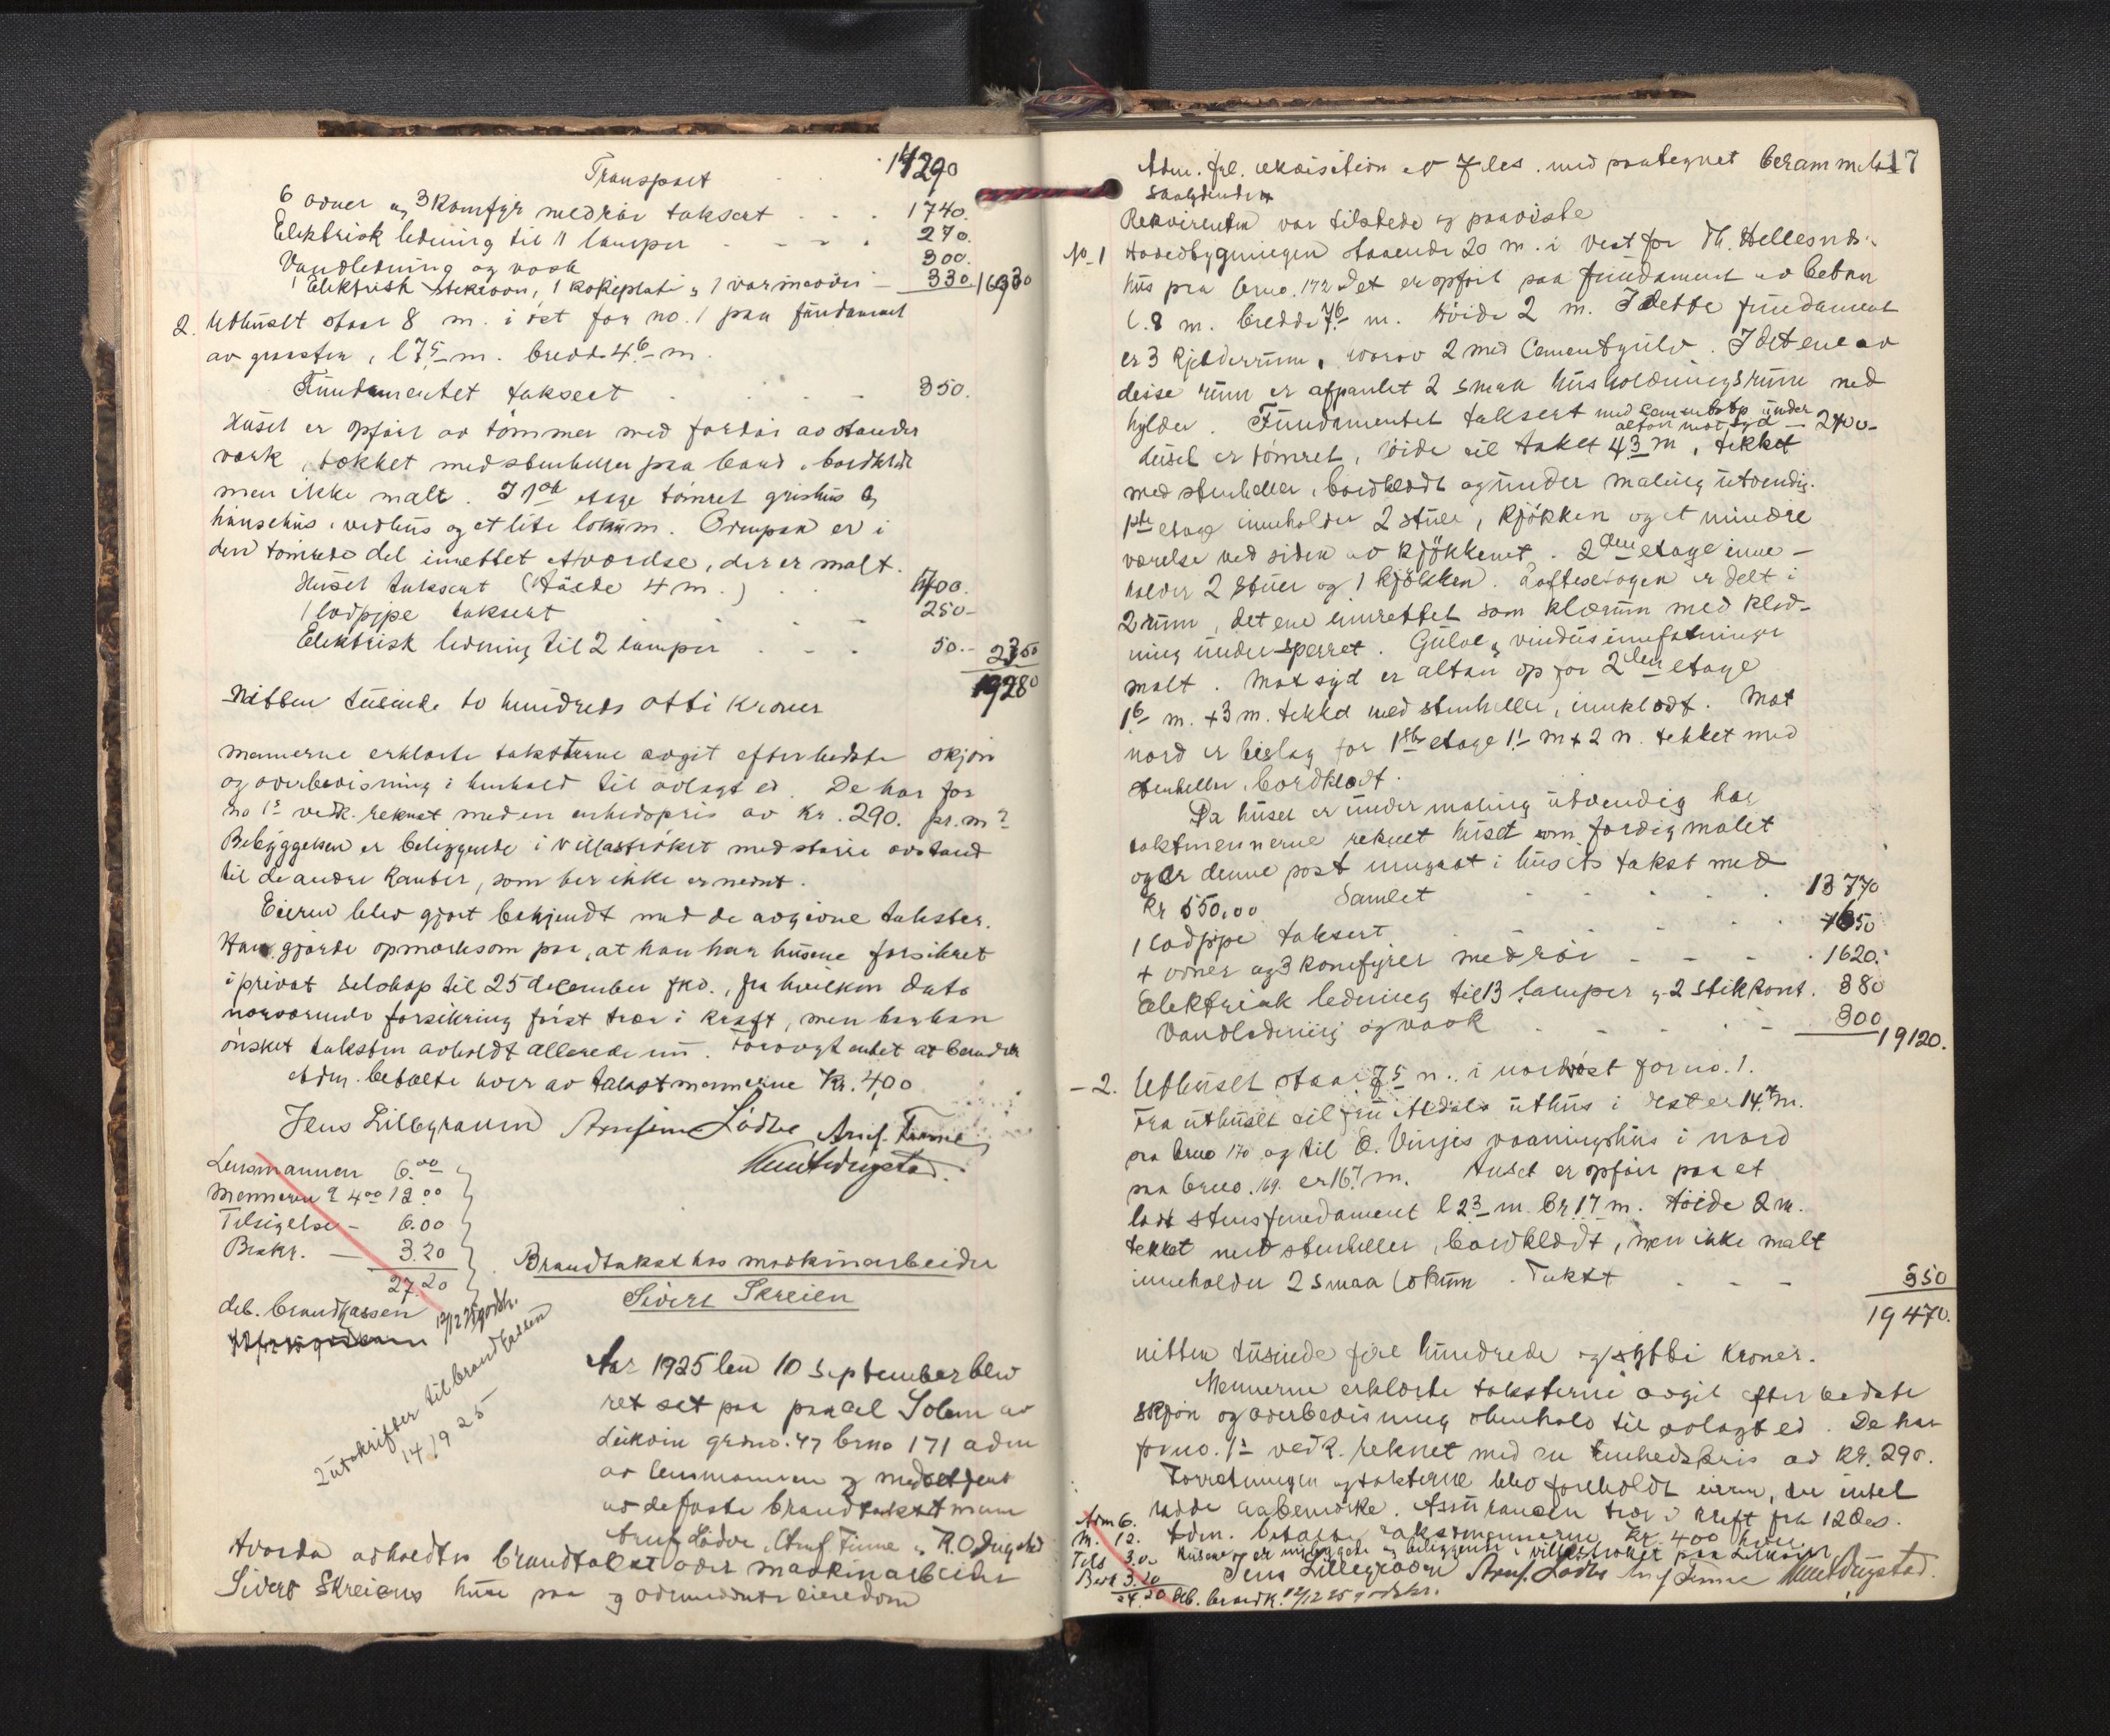 Transport 14290
6 ovner og 3 komfyr med rør taksert 1740.
Elektrisk ledning til 11 lamper 270.
Vandledning og vask 300.
1 Elektrisk stekeovn, 1 kokeplate og 1 varmeovn 330 16930
2. Uthuset staar 8 m. i øst for no. 1 paa fundament
av graasten, l 7,5 m. bredde 4,6 m.
Fundamentet taksert 350.
Huset er opført av tømmer med fordør av stander
verk, tækket med stenheller paa bord, bordklædt
men ikke malt. I 1ste etage tømret grishus og
hønsehus, vedhus og et lite lokum. Ovenpaa er i
den tømrede del innettet et værelse, der er malt.
Huset taksert (Høide 4 m.) 1700.
1 lodpipe taksert 250-
Elektrisk ledning til 2 lamper 50.- 2350
19280
Nitten tusinde to hundrede otti kroner
Mennerne erklærte taksterne avgit efter bedste skjøn
og overbevisning i henhold til avlagt ed. De har for
no 1s vedk. reknet med en enhedspris av kr. 290. pr. m2
Bebyggelsen er beliggende i villastrøket med større avstand
til de andre kanter, som her ikke er nevnt.
Eieren blev gjort bekjendt med de avgivne takster.
Han gjorde opmerksom paa, at han har husene forsikret
i privat selskap til 25 december fkd., fra hvilken dato
nærværende forsikring først træer i kraft, men har han
ønsket taksten avholdt allerede nu. Forøvrig intet at bemerke
Adm. betalte hver av takstmennerne Kr. 4,00
Jens Lillegraven Arnfinn Lødve Arnf. Finne
Knut Dugstad.
Lensmannen 6.00
Mennerne à 4.00 12.00
Tilsigelse - 6.00
Beskr. — 3.20
27.20
deb. brandkassen 12/12 25 godskr.
2 utskrifter til brandkassen
14/9 25
Brandtakst hos maskinarbeider
Sivert Skreien
Aar 1925 den 10 september blev
ret set paa parcel Solem av
Lekvin grdno. 47 brno 171 adm
av lensmannen og medbetjent
av de faste brandtakstmenn
Arnf. Lødve, Arnf Finne og K. O Dugstad
Hvorda avholdtes brandtakst over maskinarbeider
Sivert Skreiens huse paa ovennevnte eiendom
17
Adm. frl. rekvisition av 7 ds. med paategnet berammelse
saalydende
Rekvirenten var tilstede og paaviste
No. 1 Hovedbygningen staaende 20 m. i vest for Th. Hellesnds
hus paa brno. 172 Det er opført paa fundament av beton
l. 8 m. bredde 7,6 m. høide 2 m. I dette fundament
er 3 kjelderrum, hvorav 2 med Cementgulv. I det ene av
disse rum er afpanlet 2 smaa husholdningsrum med
hylder. Fundamentet taksert med cementstøp under
altan mot syd — 2400-
Huset er tømret, høide til taket 4,3 m, tekket
med stenheller, bordklædt og under maling utvendig.
1ste etage inneholder 2 stuer, kjøkken og et mindre
værelse ved siden av kjøkkenet. 2den etage inne-
holder 2 stuer og 1 kjøkken. Loftsetagen er delt i
2 rum, det ene innrettet som klærum med klæd-
ning under sperret. Gulve og vindusinnfatninger
malt. Mot syd er altan op for 2den etage
1,6 m. + 3 m. tekket med stenheller, innklædt. Mot
nord er bislag for 1ste etage 1,1 m + 2 m. tekket med
stenheller, bordklædt.
Da huset er under maling utvendig har
takstmennerne reknet huset som færdig malet
og er denne post inngaat i husets takst med
Kr 550,00 Samlet 13770
1 lodpipe taksert 650
4 ovner og 3 komfyrer med rør 1620.-
Elektrisk ledning til 13 lamper og 2 stikkont. 380
Vandledning og vask 300 19120.
- 2. Uthuset staar 7,5 m. i nordvest for no. 1.
Fra uthuset til fru Aldals uthus i vest er 14,7 m.
paa brno 170 og til O. Vinjes vaaningshus i nord
paa brno. 169. er 16,7 m. Huset er opført paa et
lodt stensfundament l 2,3 m. br. 1,7 m. Høide 2 m.
tekket med stenheller, bordklædt, men ikke malt
inneholder 2 smaa lokum. Takst 350
19470.
nitten tusinde fire hundrede og sytti kroner.
Mennerne erklærte taksterne avgit efter bedste
skjøn og overbevisning i henhold til avlagt ed. De har
for no. 1s vedk. reknet med en enhedspris av kr. 290.
Forretningen og taksterne blev foreholdt eieren, der intet
hadde at bemerke. Assurancen træer i kraft fra 12 des.
Adm. betalte takstmennerne kr. 4,00 hver.
Husene er nybyggede og beliggende i villastrøket paa Lekvin
Jens Lillegraven Arnf. Lødve Arnf Finne Knut Dugstad.
Adm 6.
M. 12.
Tils 3.0
Besk 3.20
24.20 deb. brandk. 12/12 25 godskr.